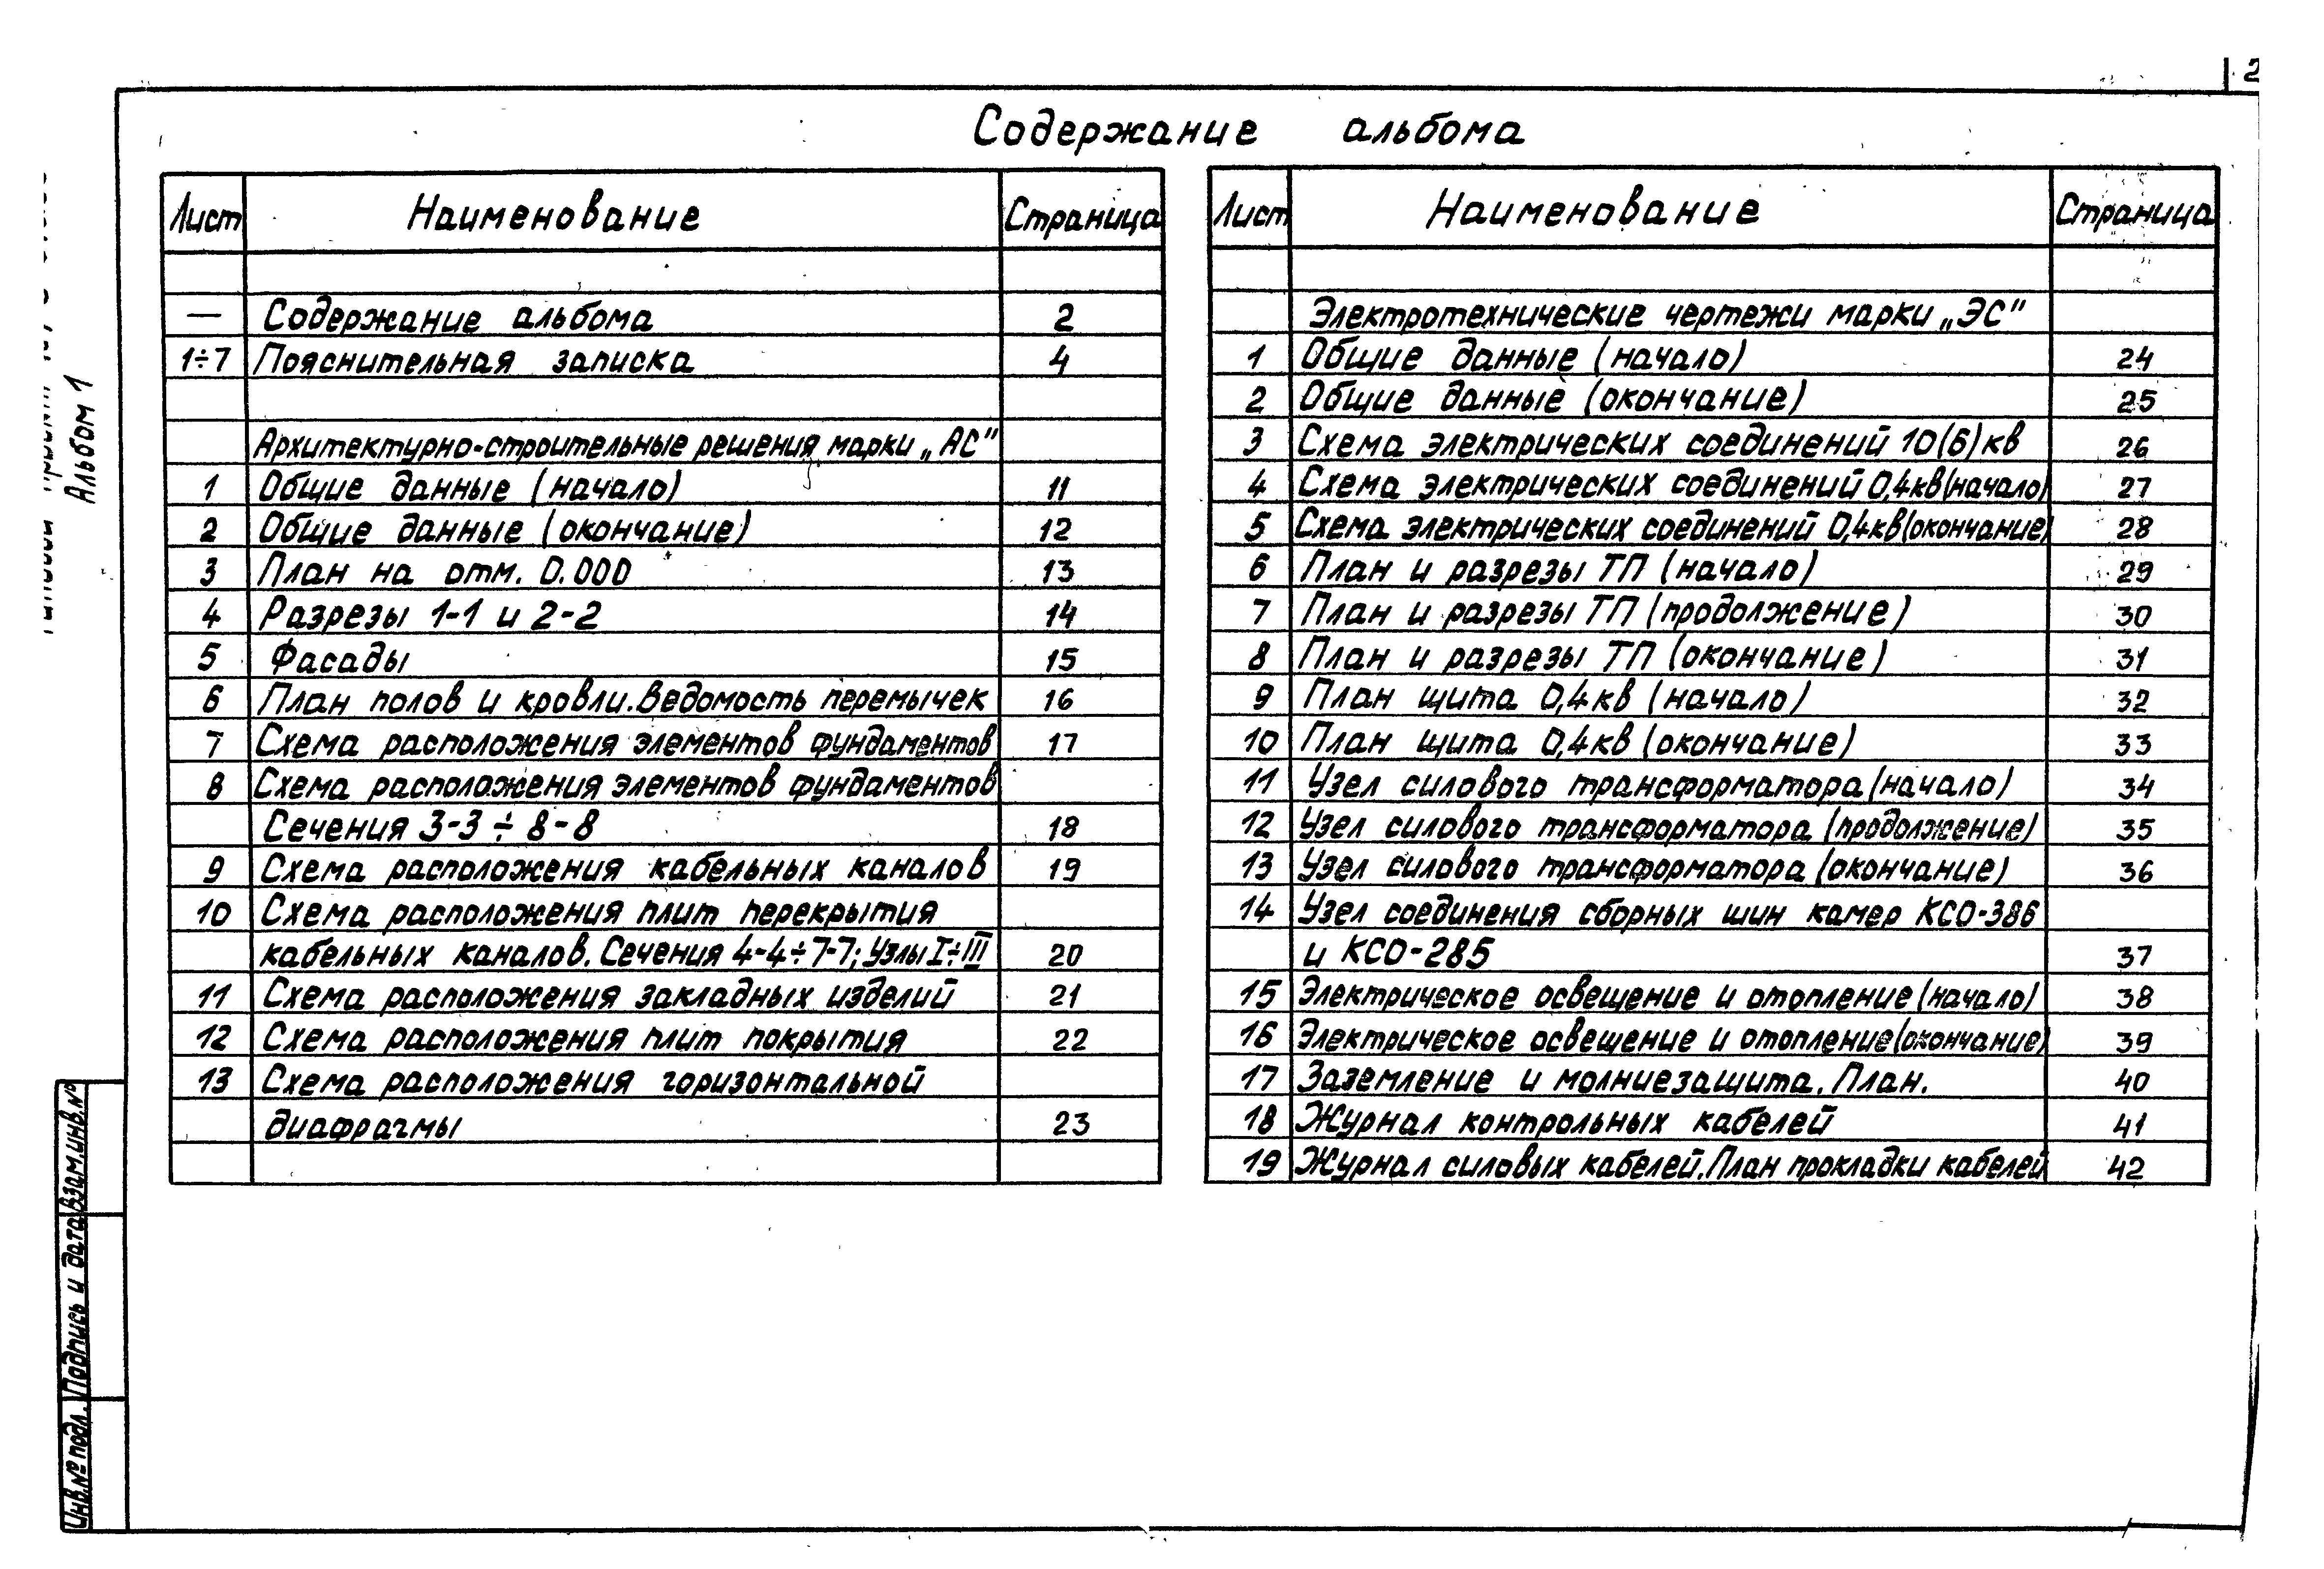 2
Содержание альбома
Лист Наименование Страница
— Содержание альбома 2
1÷7 Пояснительная записка 4
Архитектурно-строительные решения марки „АС"
1 Общие данные (начало) 11
2 Общие данные (окончание) 12
3 План на отм. 0.000 13
4 Разрезы 1-1 и 2-2 14
5 Фасады 15
6 План полов и кровли. Ведомость перемычек 16
7 Схема расположения элементов фундаментов 17
8 Схема расположения элементов фундаментов
Сечения 3-3 ÷ 8-8 18
9 Схема расположения кабельных каналов 19
10 Схема расположения плит перекрытия
кабельных каналов. Сечения 4-4÷7-7; Узлы I÷III 20
11 Схема расположения закладных изделий 21
12 Схема расположения плит покрытия 22
13 Схема расположения горизонтальной
диафрагмы 23
Лист Наименование Страница
Электротехнические чертежи марки „ЭС"
1 Общие данные (начало) 24
2 Общие данные (окончание) 25
3 Схема электрических соединений 10(6)кв 26
4 Схема электрических соединений 0,4кв(начало) 27
5 Схема электрических соединений 0,4кв(окончание) 28
6 План и разрезы ТП (начало) 29
7 План и разрезы ТП (продолжение) 30
8 План и разрезы ТП (окончание) 31
9 План щита 0,4кв (начало) 32
10 План щита 0,4кв (окончание) 33
11 Узел силового трансформатора (начало) 34
12 Узел силового трансформатора (продолжение) 35
13 Узел силового трансформатора (окончание) 36
14 Узел соединения сборных шин камер КСО-386
и КСО-285 37
15 Электрическое освещение и отопление (начало) 38
16 Электрическое освещение и отопление(окончание) 39
17 Заземление и молниезащита. План. 40
18 Журнал контрольных кабелей 41
19 Журнал силовых кабелей. План прокладки кабелей 42
Альбом 1
Взам.инв.№
Подпись и дата
Инв.№ подл.